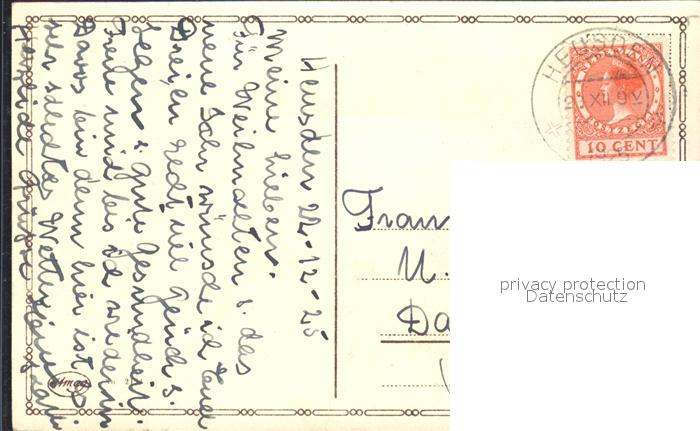 Heusden 22-12-25
Meine Lieben.
Für Weihnachten u. das
neue Jahr wünsche ich Euch
Dreien recht viel Glück u.
Segen u. gute Gesundheit.
Freue mich bis ich wieder in
Davos bin denn hier ist
sehr schlechtes Wetter
Herzliche Grüsse
HEUSDEN
XII
NEDERLAND
10 CENT
Fran
U.
Da
privacy protection
Datenschutz